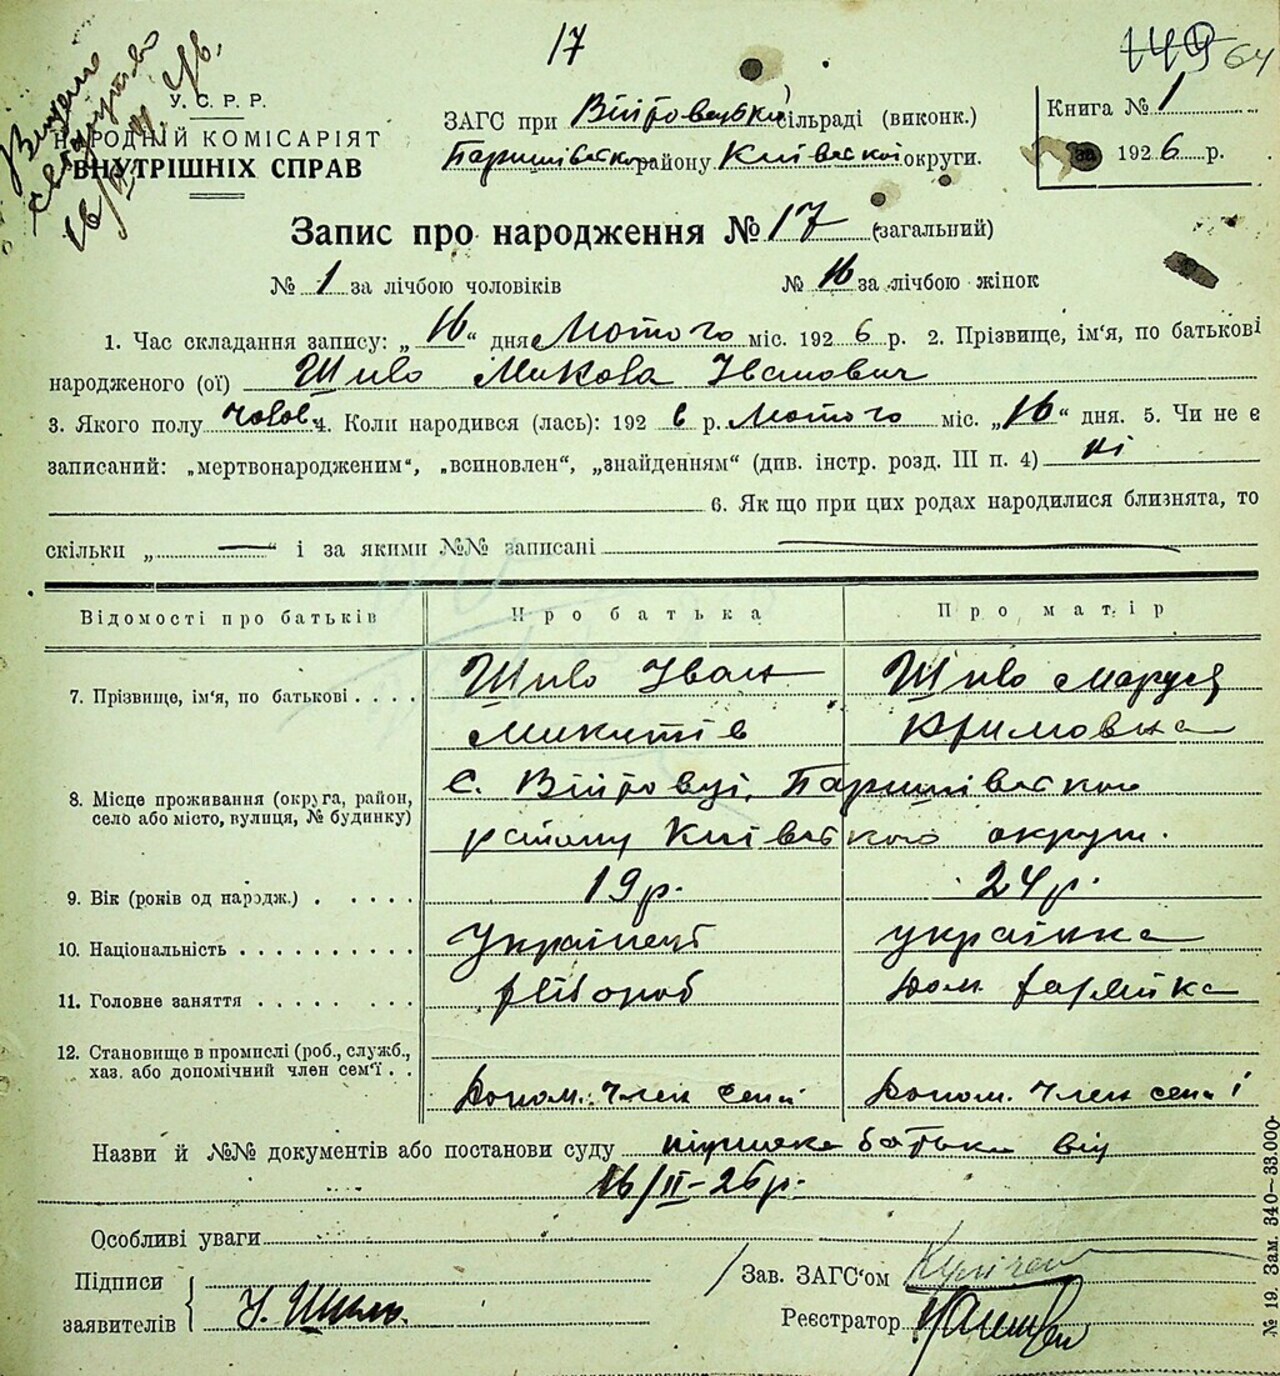 17
149 64
У. С. Р. Р.
НАРОДНІЙ КОМІСАРІЯТ
ВНУТРІШНІХ СПРАВ
ЗАГС при Війтовецькій сільраді (виконк.)
Баришівського району Київської округи.
Книга № 1
за 1926 р.
Запис про народження № 17 (загальний)
№ 1 за лічбою чоловіків № 16 за лічбою жінок
1. Час складання запису: „16“ дня Лютого міс. 1926 р. 2. Прізвище, ім‘я, по батькові
народженого (ої) Шило Микола Іванович
3. Якого полу чолов. 4. Коли народився (лась): 1926 р. Лютого міс. „16“ дня. 5. Чи не є
записаний: „мертвонародженим“, „всиновлен“, „знайденням“ (див. інстр. розд. III п. 4) ні
6. Як що при цих родах народилися близнята, то
скільки „ — “ і за якими №№ записані —
Відомості про батьків Про батька Про матір
7. Прізвище, ім‘я, по батькові . . . . Шило Іван Шило Маруся
Микитів
8. Місце проживання (округа, район, с. Війтовці, Баришівського
село або місто, вулиця, № будинку)
району Київського округи.
9. Вік (років од народж.) . . . . . 19 р. 24 р.
10. Національність . . . . . . . . . . Українець українка
11. Головне заняття . . . . . . . . . хлібороб дом.
12. Становище в промислі (роб., служб.,
хаз. або допомічний член сем‘ї . .
Допом. член семї Допом. член семї
Назви й №№ документів або постанови суду батька від
16/II-26 р.
Особливі уваги
Підписи
заявителів І. Шило.
Зав. ЗАГС‘ом
Реєстратор
№ 19. Зам. 340—33.000.